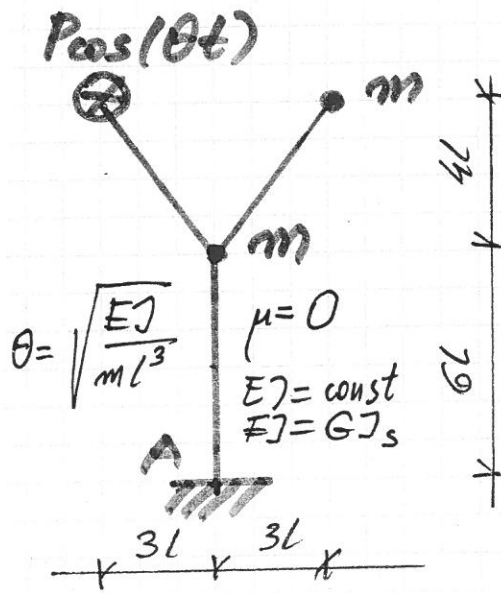 Pcos(θt)
m
4l
m
θ=√(EJ/ml³)
μ=0
EJ=const
EJ=GJs
6l
A
3l
3l